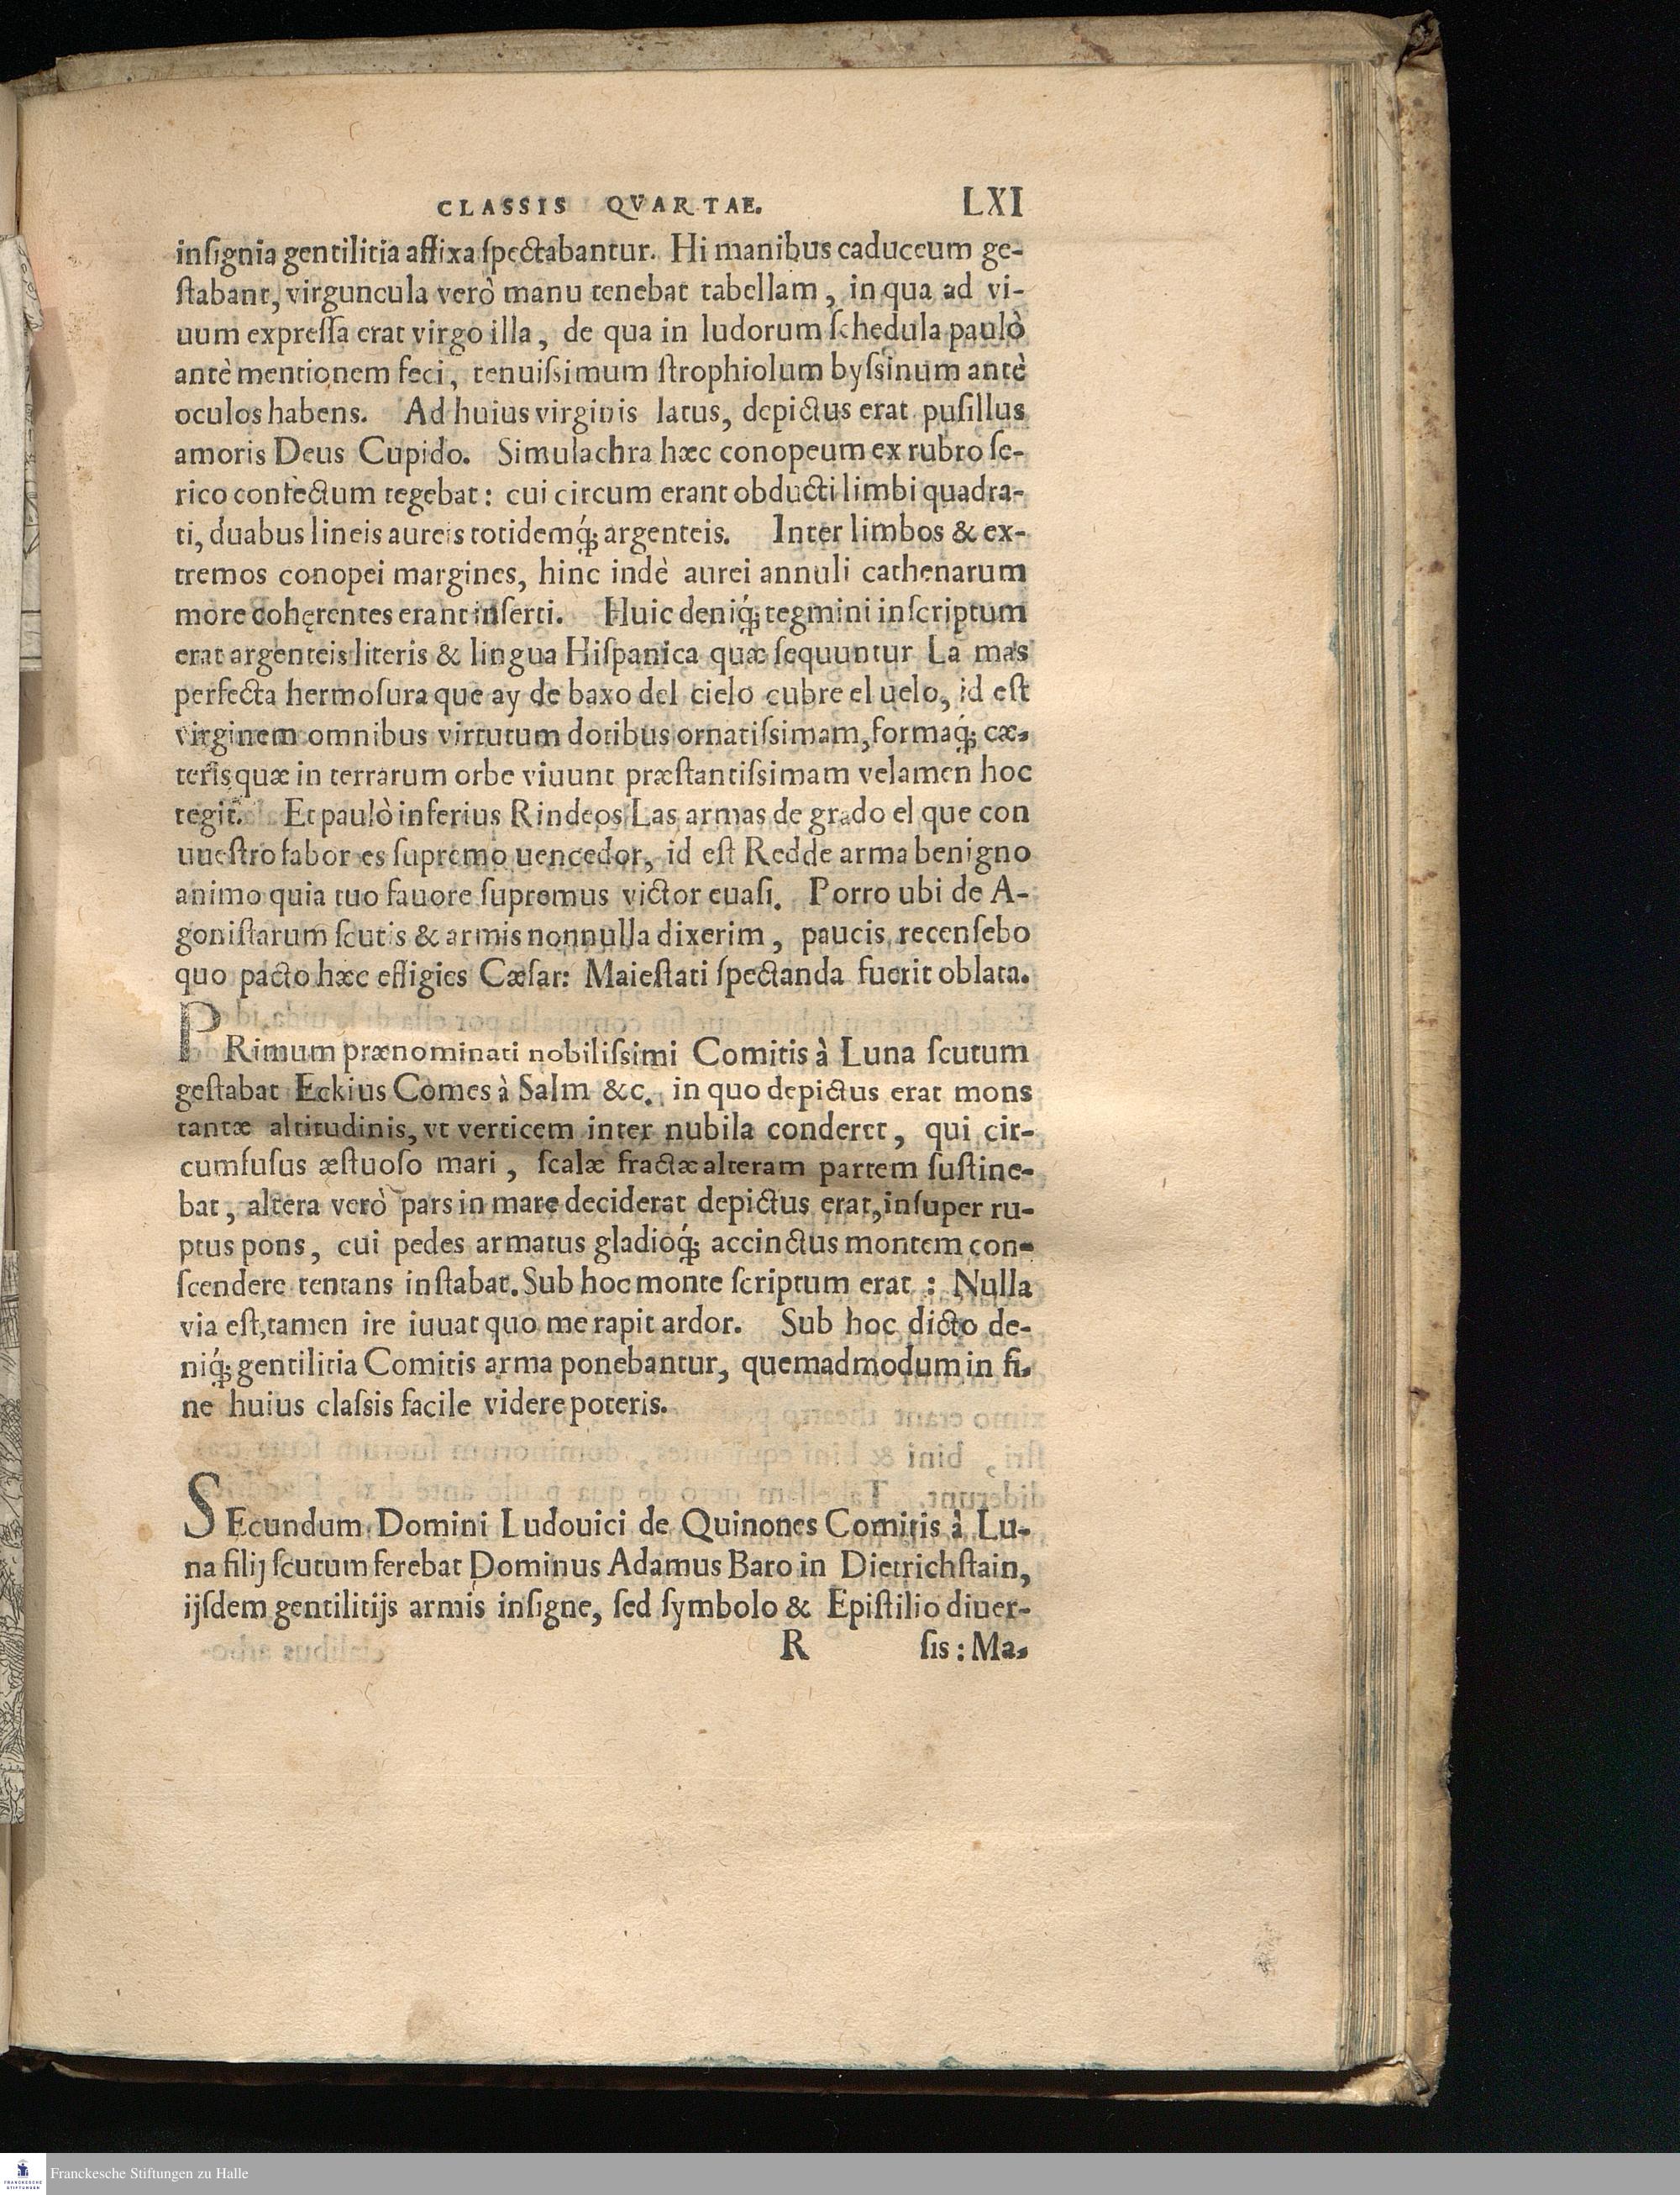 CLASSIS QVARTAE. LXI
inſignia gentilitia affixa ſpectabantur. Hi manibus caduceum ge-
ſtabant, virguncula verò manu tenebat tabellam, in qua ad vi-
uum expreſſa erat virgo illa, de qua in ludorum ſchedula paulò
antè mentionem feci, tenuiſsimum ſtrophiolum byſsinum antè
oculos habens. Ad huius virginis latus, depictus erat puſillus
amoris Deus Cupido. Simulachra hæc conopeum ex rubro ſe-
rico confectum tegebat: cui circum erant obducti limbi quadra-
ti, duabus lineis aureis totidemq́; argenteis. Inter limbos & ex-
tremos conopei margines, hinc indè aurei annuli cathenarum
more cohęrentes erant inſerti. Huic deniq́; tegmini inſcriptum
erat argenteis literis & lingua Hiſpanica quæ ſequuntur La mas
perfecta hermoſura que ay de baxo del cielo cubre el uelo, id eſt
virginem omnibus virtutum dotibus ornatiſsimam, formaq́; cæ-
teris quæ in terrarum orbe viuunt præſtantiſsimam velamen hoc
tegit. Et paulò inferius Rindeos Las armas de grado el que con
uueſtro fabor es ſupremo uencedor, id eſt Redde arma benigno
animo quia tuo fauore ſupremus victor euaſi. Porro ubi de A-
goniſtarum ſcutis & armis nonnulla dixerim, paucis recenſebo
quo pacto hæc effigies Cæſar: Maieſtati ſpectanda fuerit oblata.
PRimum prænominati nobiliſsimi Comitis à Luna ſcutum
geſtabat Eckius Comes à Salm &c. in quo depictus erat mons
tantæ altitudinis, vt verticem inter nubila conderet, qui cir-
cumfuſus æſtuoſo mari, ſcalæ fractæ alteram partem ſuſtine-
bat, altera verò pars in mare deciderat depictus erat, inſuper ru-
ptus pons, cui pedes armatus gladioq́; accinctus montem con-
ſcendere tentans inſtabat. Sub hoc monte ſcriptum erat: Nulla
via eſt, tamen ire iuuat quo me rapit ardor. Sub hoc dicto de-
niq́; gentilitia Comitis arma ponebantur, quemadmodum in fi-
ne huius claſsis facile videre poteris.
SEcundum Domini Ludouici de Quinones Comitis à Lu-
na filij ſcutum ferebat Dominus Adamus Baro in Dietrichſtain,
ijſdem gentilitijs armis inſigne, ſed ſymbolo & Epiſtilio diuer-
R ſis: Ma-
Franckesche Stiftungen zu Halle